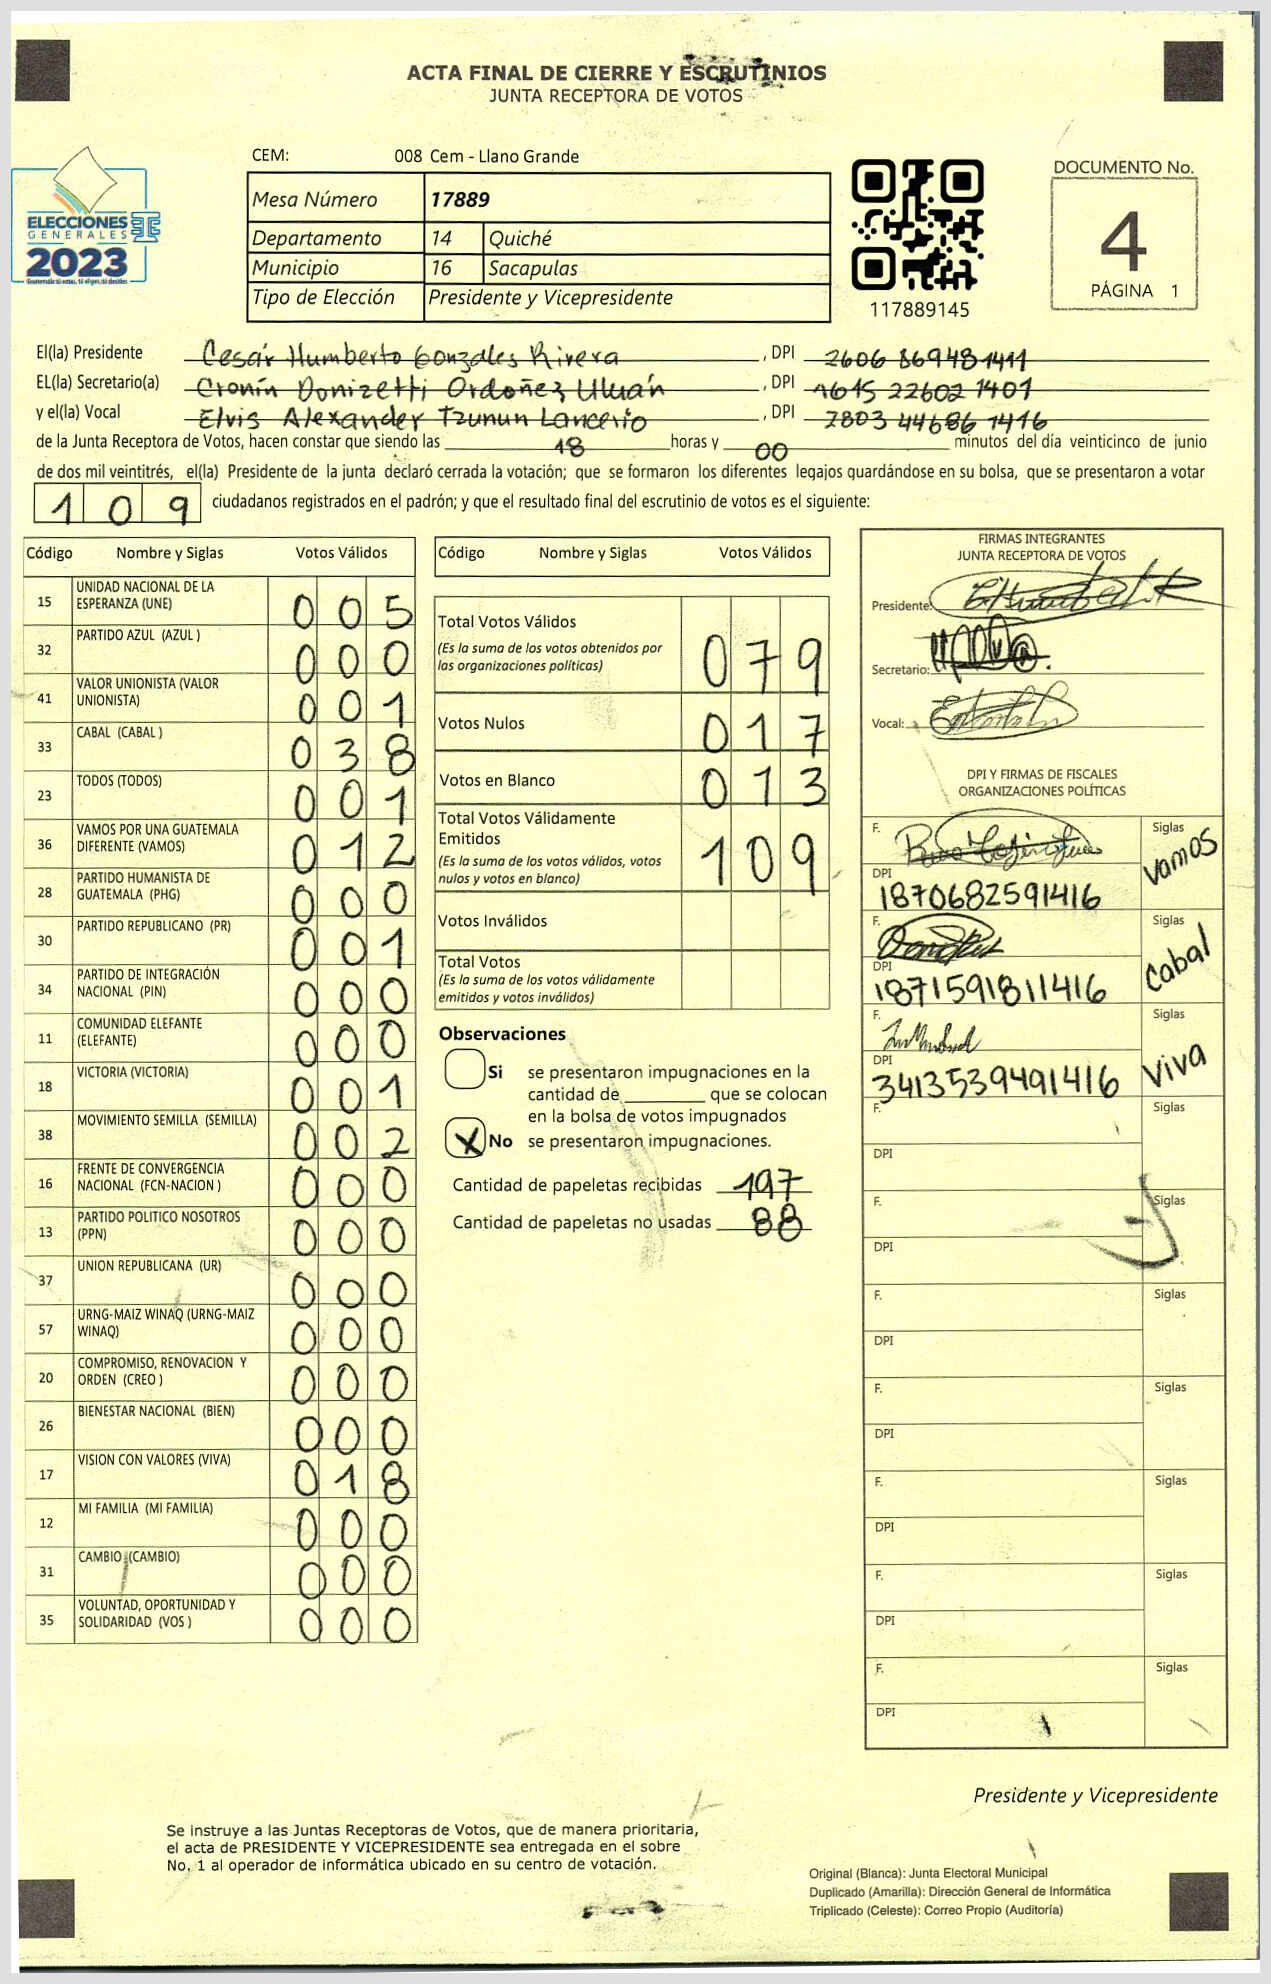 ACTA FINAL DE CIERRE Y ESCRUTINIOS
JUNTA RECEPTORA DE VOTOS
CEM: 008 Cem - Llano Grande
ELECCIONES
GENERALES
2023
Mesa Número 17889
Departamento 14 Quiché
Municipio 16 Sacapulas
Tipo de Elección Presidente y Vicepresidente
117889145
DOCUMENTO No.
4
PÁGINA 1
El(la) Presidente Cesár Humberto Gonzales Rivera , DPI 2606 86948 1411
EL(la) Secretario(a) Cronín Donizetti Ordoñez Uluán , DPI 1615 22602 1401
y el(la) Vocal Elvis Alexander Tzunun Lancerio , DPI 2803 44686 1416
de la Junta Receptora de Votos, hacen constar que siendo las 18 horas y 00 minutos del día veinticinco de junio
de dos mil veintitrés, el(la) Presidente de la junta declaró cerrada la votación; que se formaron los diferentes legajos guardándose en su bolsa, que se presentaron a votar
109 ciudadanos registrados en el padrón; y que el resultado final del escrutinio de votos es el siguiente:
Código Nombre y Siglas Votos Válidos
15 UNIDAD NACIONAL DE LA ESPERANZA (UNE) 005
32 PARTIDO AZUL (AZUL ) 000
41 VALOR UNIONISTA (VALOR UNIONISTA) 001
33 CABAL (CABAL ) 038
23 TODOS (TODOS) 001
36 VAMOS POR UNA GUATEMALA DIFERENTE (VAMOS) 012
28 PARTIDO HUMANISTA DE GUATEMALA (PHG) 000
30 PARTIDO REPUBLICANO (PR) 001
34 PARTIDO DE INTEGRACIÓN NACIONAL (PIN) 000
11 COMUNIDAD ELEFANTE (ELEFANTE) 000
18 VICTORIA (VICTORIA) 001
38 MOVIMIENTO SEMILLA (SEMILLA) 002
16 FRENTE DE CONVERGENCIA NACIONAL (FCN-NACION ) 000
13 PARTIDO POLITICO NOSOTROS (PPN) 000
37 UNION REPUBLICANA (UR) 000
57 URNG-MAIZ WINAQ (URNG-MAIZ WINAQ) 000
20 COMPROMISO, RENOVACION Y ORDEN (CREO ) 000
26 BIENESTAR NACIONAL (BIEN) 000
17 VISION CON VALORES (VIVA) 018
12 MI FAMILIA (MI FAMILIA) 000
31 CAMBIO (CAMBIO) 000
35 VOLUNTAD, OPORTUNIDAD Y SOLIDARIDAD (VOS ) 000
Código Nombre y Siglas Votos Válidos
Total Votos Válidos 079
(Es la suma de los votos obtenidos por
las organizaciones políticas)
Votos Nulos 017
Votos en Blanco 013
Total Votos Válidamente
Emitidos 109
(Es la suma de los votos válidos, votos
nulos y votos en blanco)
Votos Inválidos
Total Votos
(Es la suma de los votos válidamente
emitidos y votos inválidos)
Observaciones
Si se presentaron impugnaciones en la
cantidad de ________ que se colocan
en la bolsa de votos impugnados
X No se presentaron impugnaciones.
Cantidad de papeletas recibidas 197
Cantidad de papeletas no usadas 88
FIRMAS INTEGRANTES
JUNTA RECEPTORA DE VOTOS
Presidente:
Secretario:
Vocal:
DPI Y FIRMAS DE FISCALES
ORGANIZACIONES POLÍTICAS
F. Siglas vamos
DPI 1870682591416
F. Siglas Cabal
DPI 1871591811416
F. Siglas Viva
DPI 3413539491416
F. Siglas
DPI
F. Siglas
DPI
F. Siglas
DPI
F. Siglas
DPI
F. Siglas
DPI
F. Siglas
DPI
F. Siglas
DPI
Presidente y Vicepresidente
Se instruye a las Juntas Receptoras de Votos, que de manera prioritaria,
el acta de PRESIDENTE Y VICEPRESIDENTE sea entregada en el sobre
No. 1 al operador de informática ubicado en su centro de votación.
Original (Blanca): Junta Electoral Municipal
Duplicado (Amarilla): Dirección General de Informática
Triplicado (Celeste): Correo Propio (Auditoría)